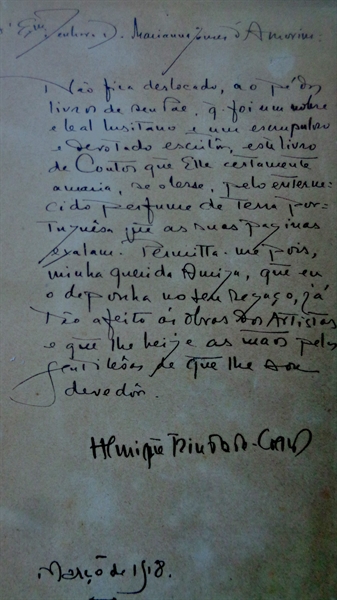 Á Exma Senhora D. Marianna Gomes d'Amorim:
Não fica deslocado, ao pé dos
livros de seu Pae, q. foi um nobre
e leal lusitano e um escrupuloso
e devotado escritor, este livro
de Contos que Elle certamente
amaria, se o lesse, pelo enterne-
cido perfume de terra por-
tuguêsa que as suas paginas
exalam. Permitta-me pois,
minha querida Amiga, que eu
o deponha no seu regaço, já
tão afeito ás obras dos Artistas
e que lhe beije as mãos pelas
gentilêsas de que lhe sou
devedôr.
Henrique
Março de 1918.